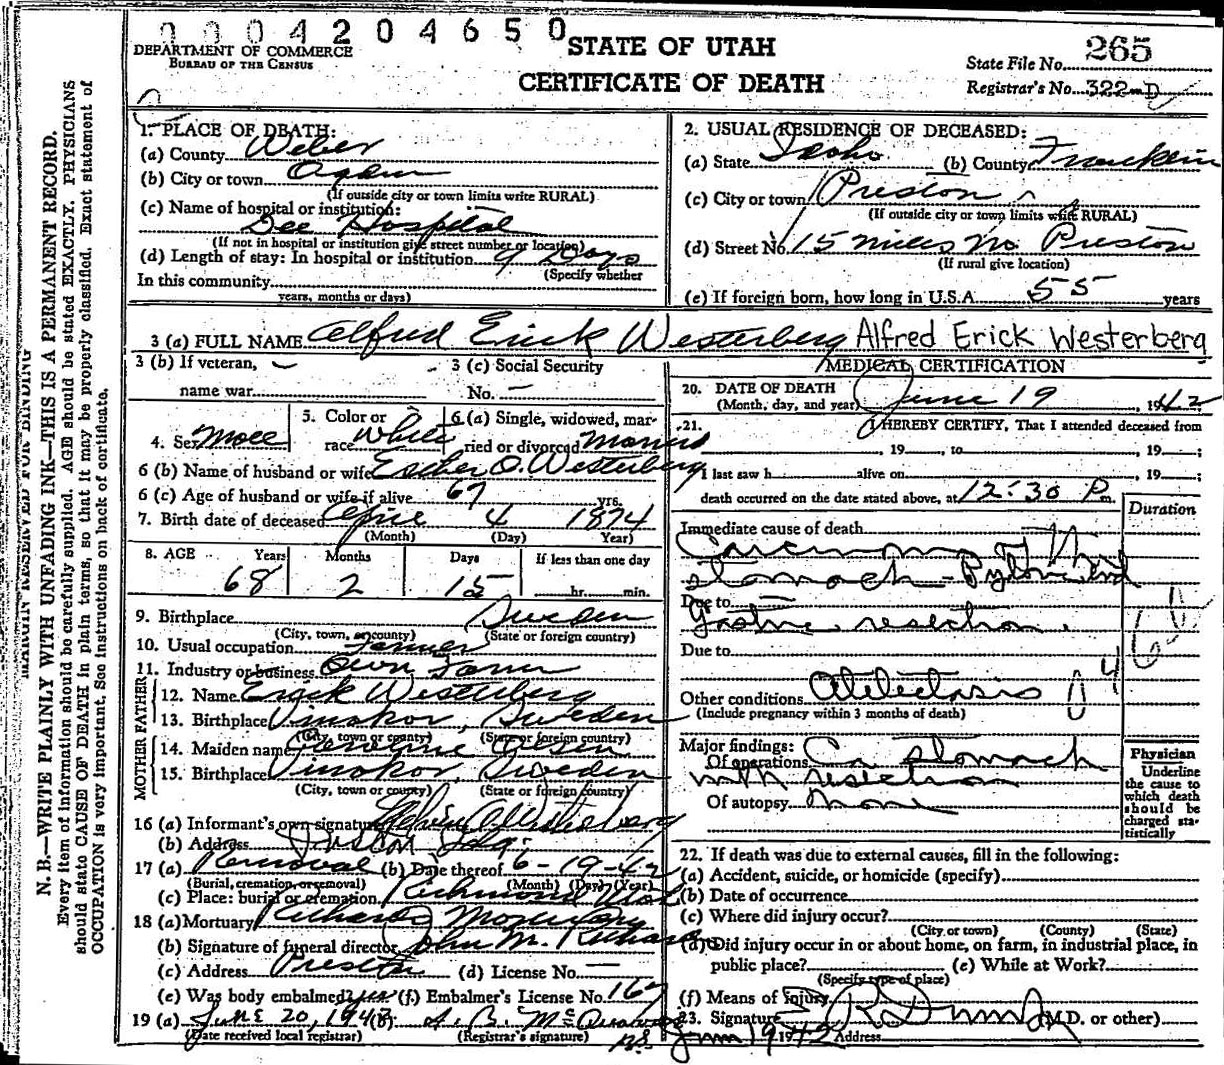 0004204650
DEPARTMENT OF COMMERCE
BUREAU OF THE CENSUS
STATE OF UTAH
CERTIFICATE OF DEATH
State File No. 265
Registrar's No. 322-D
MARGIN RESERVED FOR BINDING
N. B.—WRITE PLAINLY WITH UNFADING INK—THIS IS A PERMANENT RECORD.
Every item of information should be carefully supplied. AGE should be stated EXACTLY. PHYSICIANS
should state CAUSE OF DEATH in plain terms, so that it may be properly classified. Exact statement of
OCCUPATION is very important. See instructions on back of certificate.
1. PLACE OF DEATH:
(a) County Weber
(b) City or town Ogden
(If outside city or town limits write RURAL)
(c) Name of hospital or institution:
Dee Hospital
(If not in hospital or institution give street number or location)
(d) Length of stay: In hospital or institution 9 Days
(Specify whether
In this community
years, months or days)
2. USUAL RESIDENCE OF DECEASED:
(a) State Idaho (b) County Franklin
(c) City or town Preston
(If outside city or town limits write RURAL)
(d) Street No. 15 miles No Preston
(If rural give location)
(e) If foreign born, how long in U.S.A. 55 years
3 (a) FULL NAME Alfred Erick Westerberg Alfred Erick Westerberg
3 (b) If veteran,
name war
3 (c) Social Security
No. —
4. Sex Male
5. Color or
race White
6 (a) Single, widowed, mar-
ried or divorced Married
6 (b) Name of husband or wife Esther O. Westerberg
6 (c) Age of husband or wife if alive 67 yrs.
7. Birth date of deceased April 4 1874
(Month) (Day) Year)
8. AGE Years Months Days If less than one day
68 2 15 hr. min.
9. Birthplace Sweden
(City, town, or county) (State or foreign country)
10. Usual occupation Farmer
11. Industry or business Own Farm
FATHER
12. Name Erick Westerberg
13. Birthplace Vinakor, Sweden
(City, town or county) (State or foreign country)
MOTHER
14. Maiden name Caroline Olsen
15. Birthplace Vinakor, Sweden
(City, town or county) (State or foreign country)
16 (a) Informant's own signature Westerberg
(b) Address Preston Ida.
17 (a) Removal (b) Date thereof 6-19-42
(Burial, cremation, or removal) (Month) (Day) (Year)
(c) Place: burial or cremation Richmond Utah
18 (a) Mortuary Richards Mortuary
(b) Signature of funeral director John M. Richards
(c) Address Preston (d) License No. —
(e) Was body embalmed? yes (f) Embalmer's License No. 167
19 (a) June 20, 1942 (b)
(Date received local registrar) (Registrar's signature)
MEDICAL CERTIFICATION
20. DATE OF DEATH
(Month, day, and year) June 19, 1942
21. I HEREBY CERTIFY, That I attended deceased from
, 19 , to , 19 ;
I last saw h alive on , 19 ;
death occurred on the date stated above, at 12:30 P m.
Duration
Immediate cause of death
Carcinoma of the
stomach - Pyloric End
Due to
Gastric resection.
Due to
Other conditions Atelectasis
(Include pregnancy within 3 months of death)
Major findings:
Of operations Ca stomach
with resection
Of autopsy None
Physician
Underline
the cause to
which death
should be
charged sta-
tistically
22. If death was due to external causes, fill in the following:
(a) Accident, suicide, or homicide (specify)
(b) Date of occurrence
(c) Where did injury occur?
(City or town) (County) (State)
(d) Did injury occur in or about home, on farm, in industrial place, in
public place? (e) While at Work?
(Specify type of place)
(f) Means of Injury
23. Signature (M.D. or other)
June 19 1942 Address